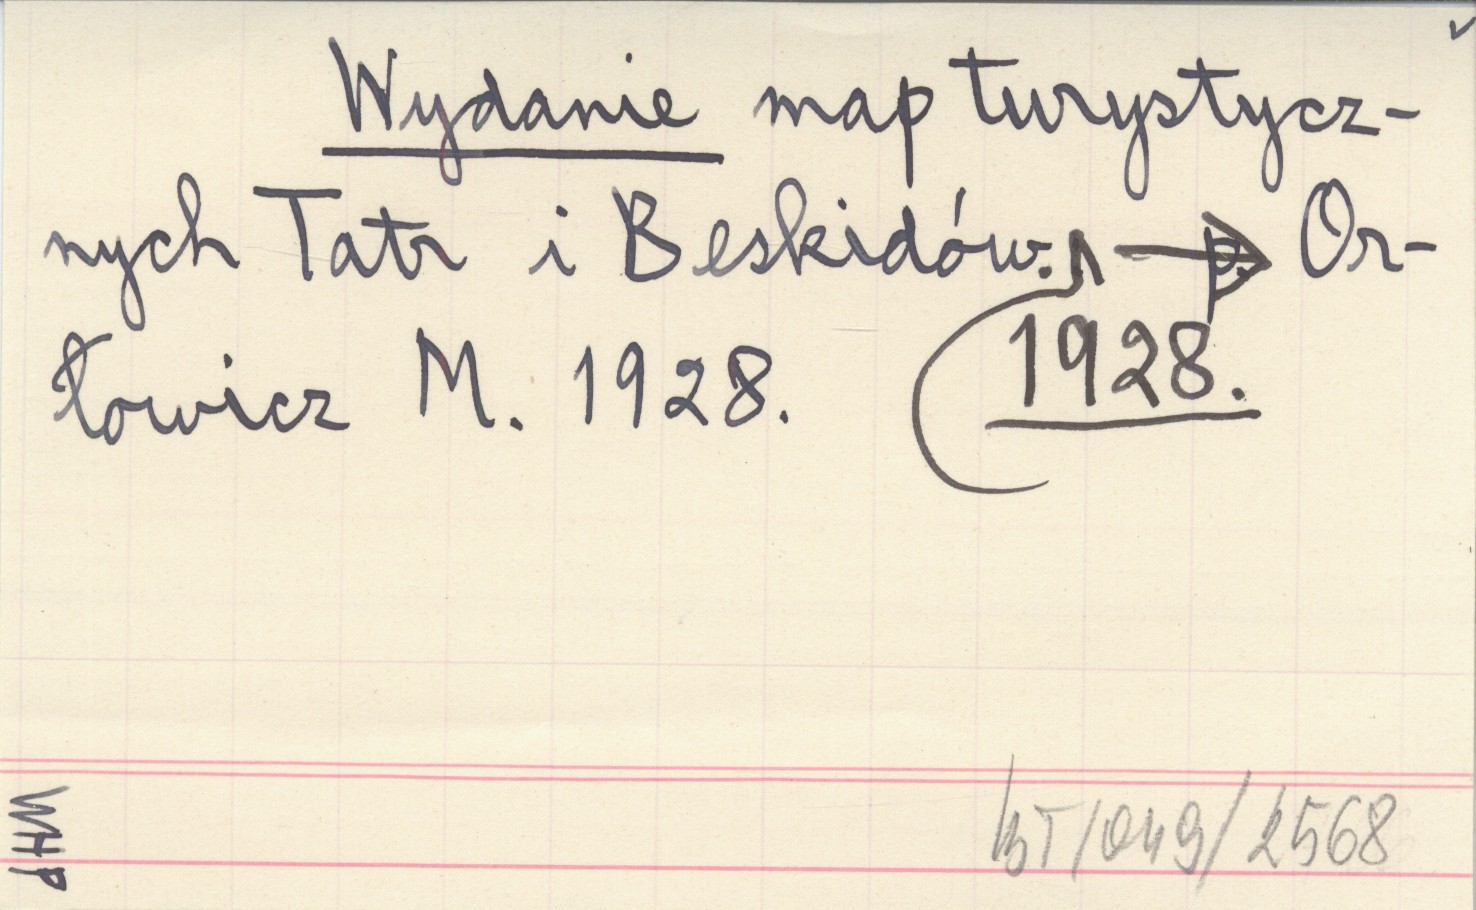 Wydanie map turystycz-
nych Tatr i Beskidów. → p. Or-
łowicz M. 1928. 1928.
WHP
2568